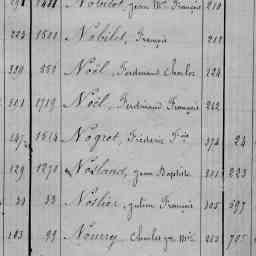 Nobilet, Jean Mie François 210
223 1501 Nobilet, François 212
320 552 Noël, Ferdinand Charles 124
501 1719 Noël, Ferdinand François 262
147 1514 Nogret, Frédéric Fçois 374 24
129 1270 Nosland, Jean Baptiste 301 223
34 33 Noslier, Julien François 305 597
103 99 Nourry, Charles